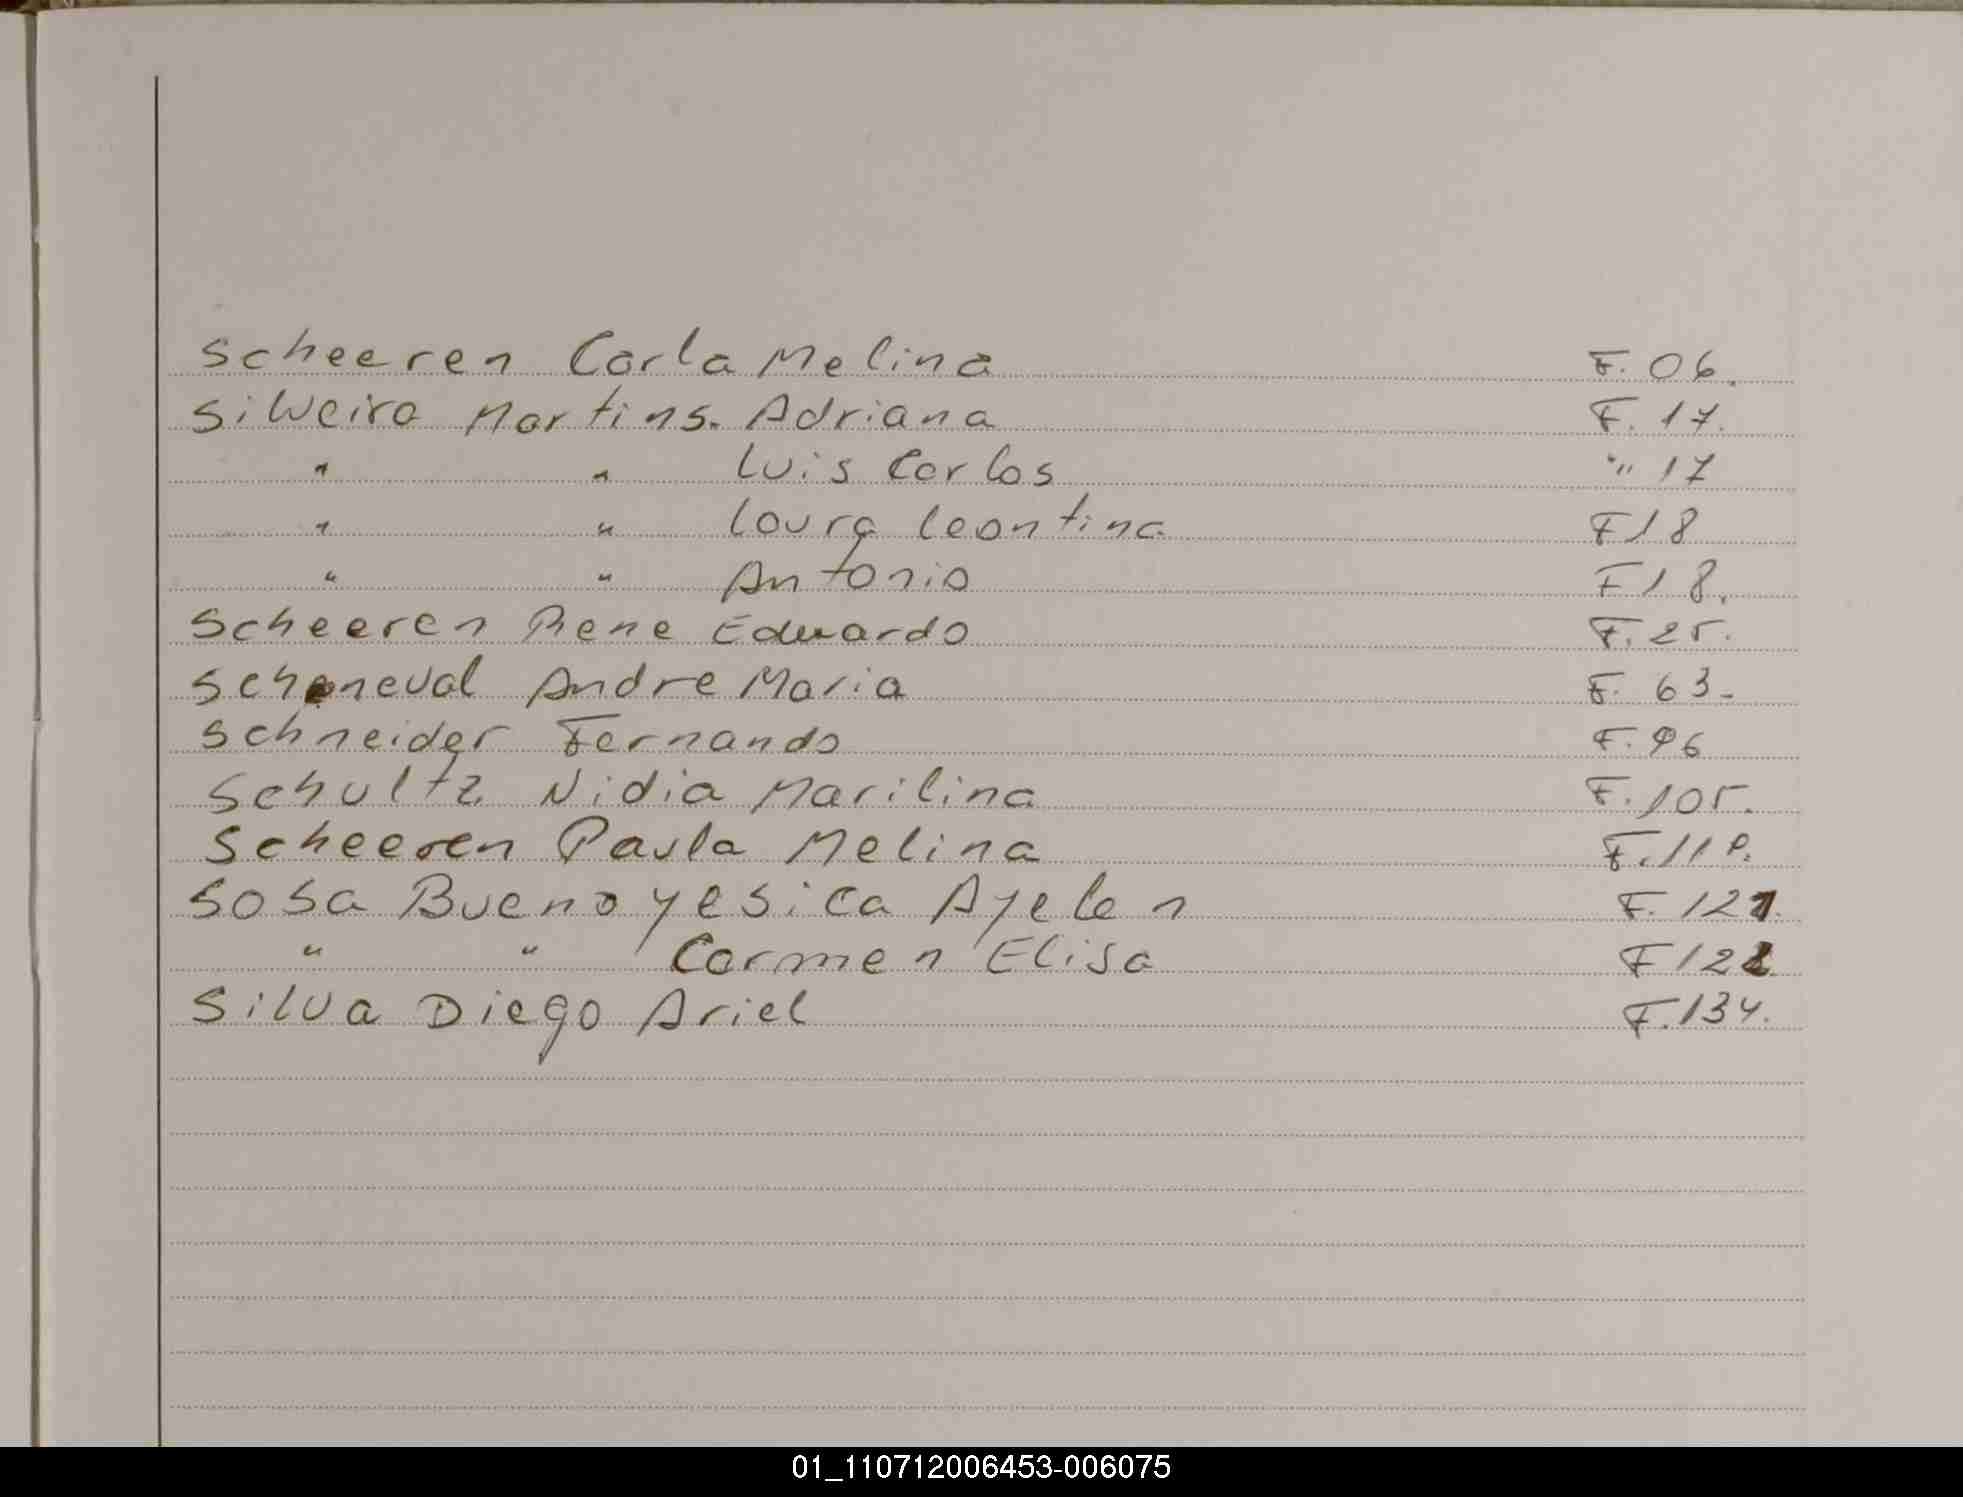 Scheeren Carla Melina F. 06.
Silveira Martins. Adriana F. 17.
" " Luis Carlos " 17
" " Laura Leontina F18
" " Antonio F18.
Scheeren Rene Eduardo F. 25.
Schoneval Andre Maria F. 63.
Schneider Fernando F. 96
Schultz Nidia Marilina F. 105.
Scheeren Paula Melina
Sosa Bueno Yesica Ayelen F. 121.
" " Carmen Elisa
Silva Diego Ariel F. 134.
01_110712006453-006075